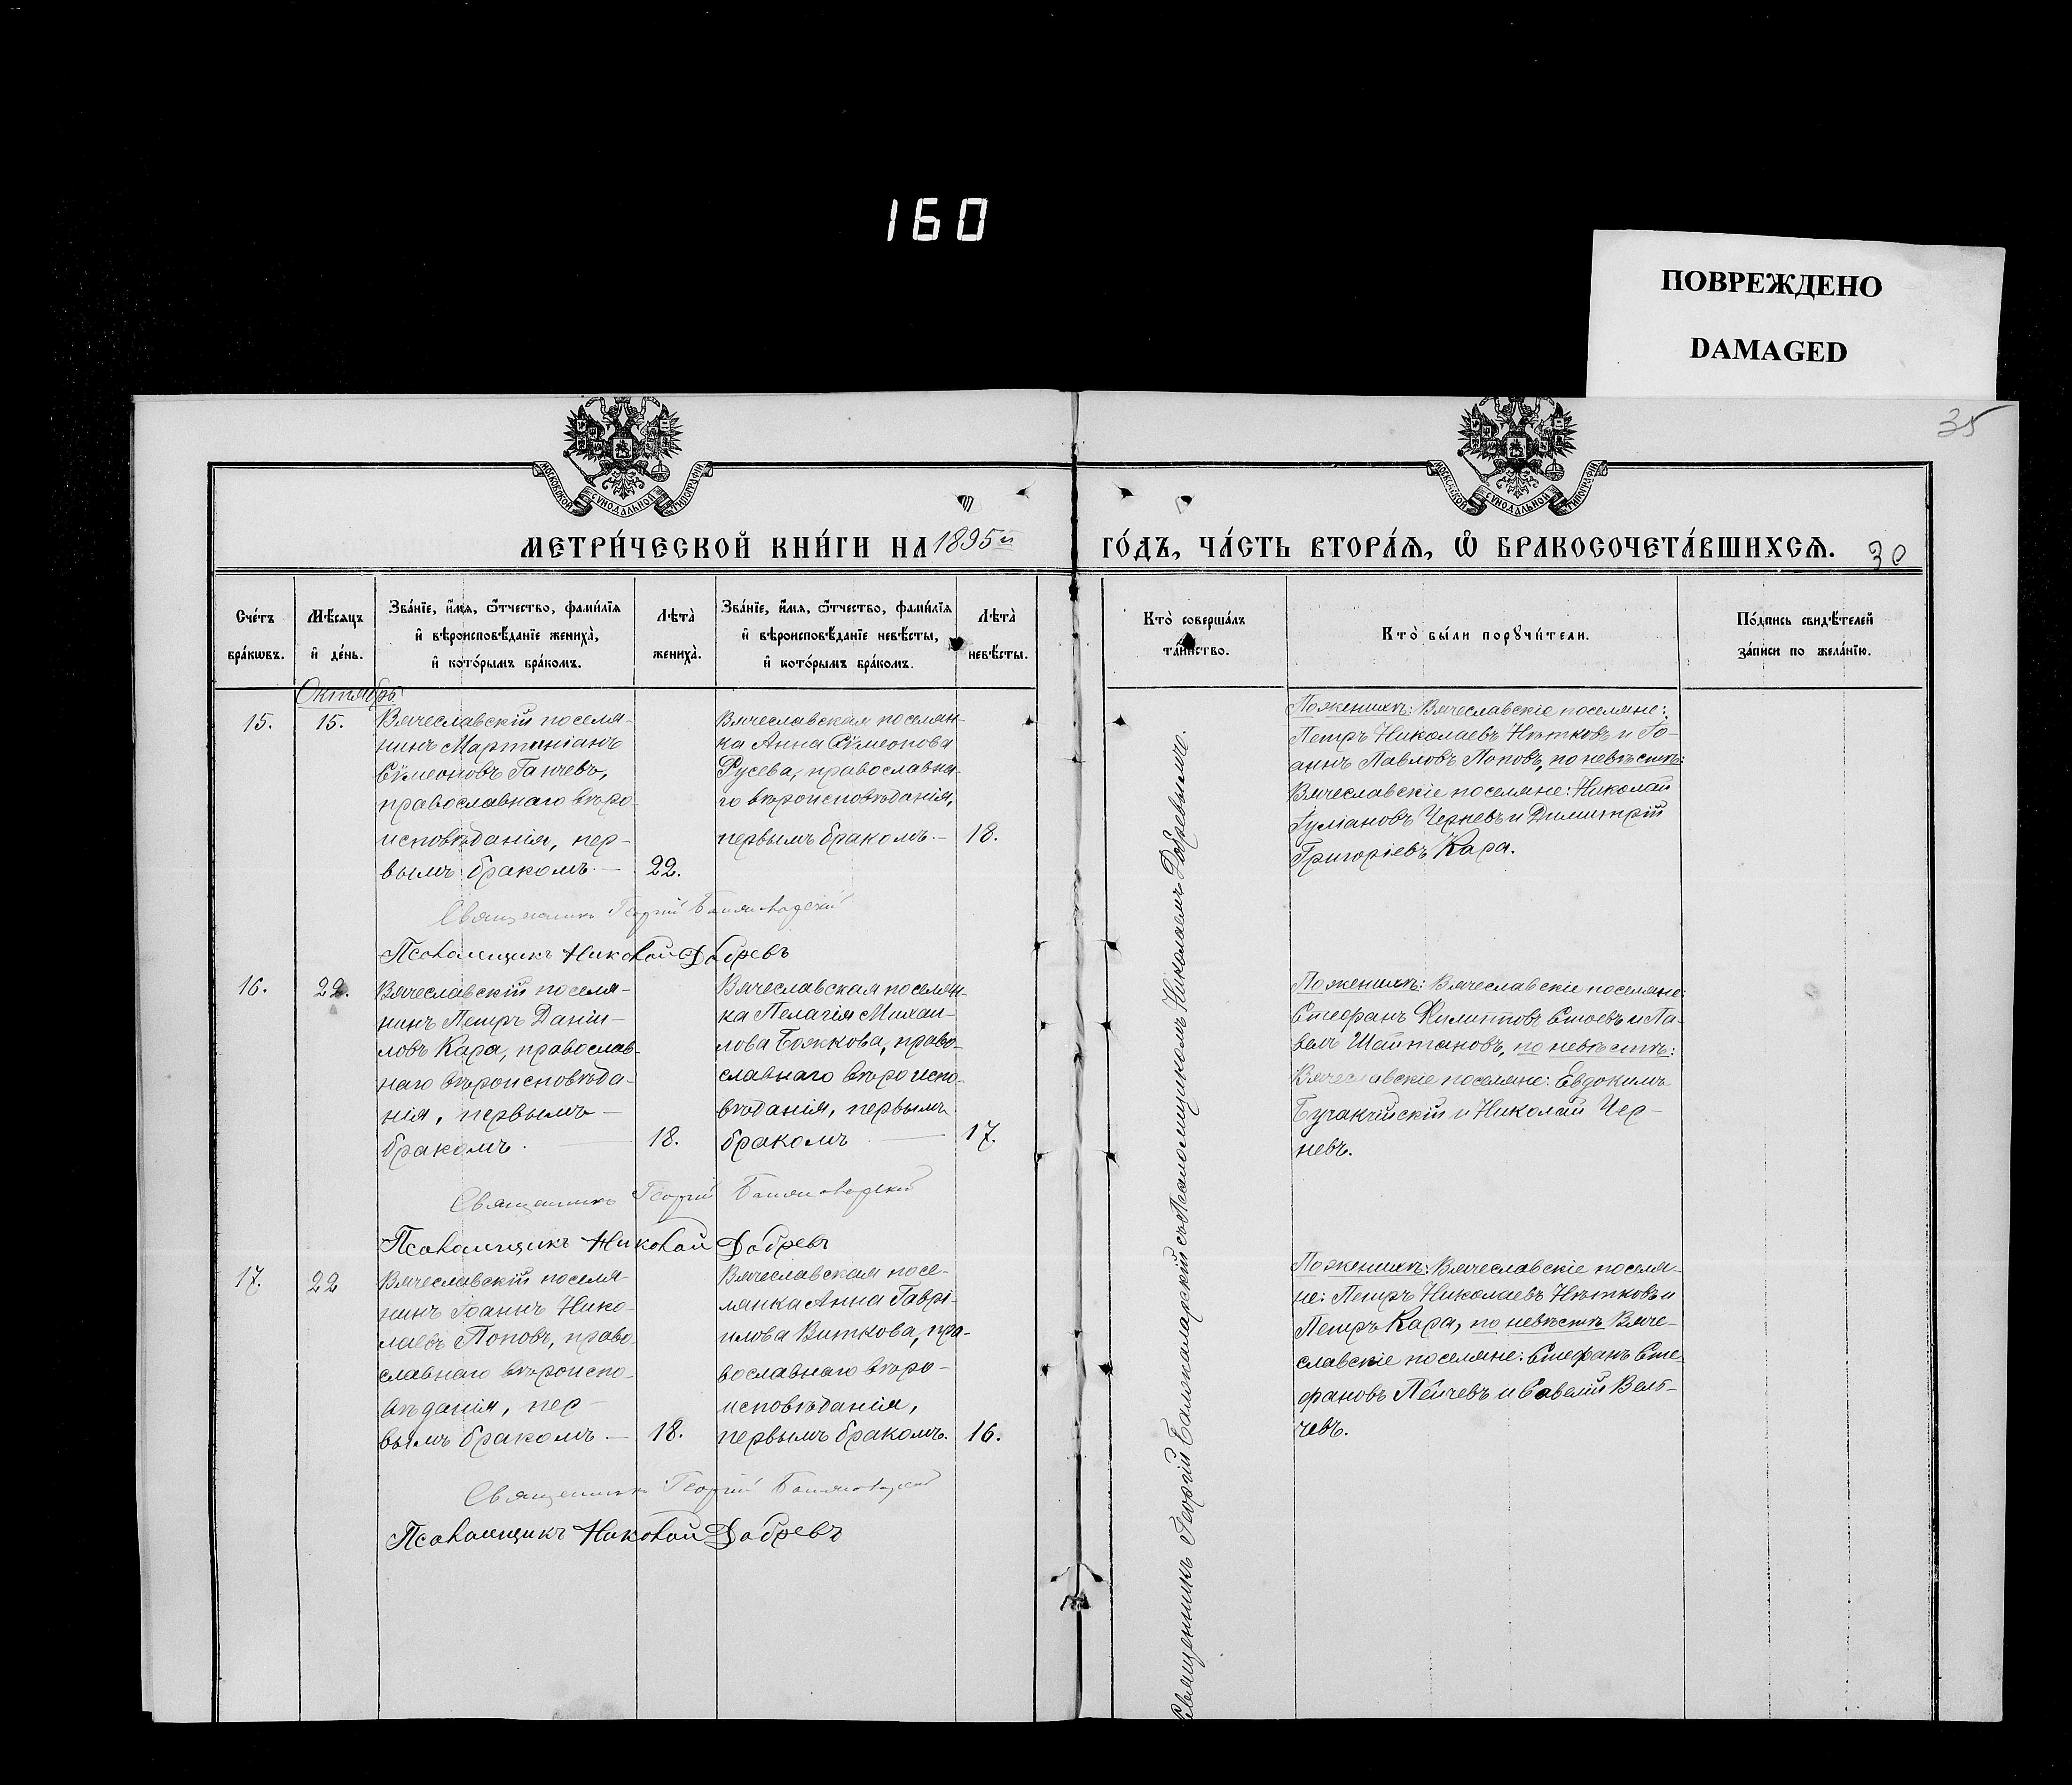 160
ПОВРЕЖДЕНО
DAMAGED
35
МОСКОВСКОЙ СѴНОДАЛЬНОЙ ТИПОГРАФІИ
МОСКОВСКОЙ СѴНОДАЛЬНОЙ ТИПОГРАФІИ
МЕТРИ́ЧЕСКОЙ КНИ́ГИ НА 1895й
ГО́ДЪ, ЧА́СТЬ ВТОРА́Ѧ, Ѽ БРАКОСОЧЕТА́ВШИХСѦ. 30
Сче́тъ
бра́кѡвъ.
Мѣ́сяцъ
и҆ де́нь.
Зва́нїе, и҆́мя, ѻ҆́тчество, фами́лїя
и҆ вѣроисповѣ́данїе жениха̀,
и҆ кото́рымъ бра́комъ.
Лѣта̀
жениха̀.
Зва́нїе, и҆́мя, ѻ҆́тчество, фами́лїя
и҆ вѣроисповѣ́данїе невѣ́сты,
и҆ кото́рымъ бра́комъ.
Лѣта̀
невѣ́сты.
Кто̀ соверша́лъ
та́инство.
Кто̀ бы́ли порꙋчи́тели.
По́дпись свидѣ́телей
за́писи по жела́нїю.
Октябрь
15.
15.
Вячеславскій поселя-
нинъ Мартиніанъ
Сѵмеоновъ Ганчевъ,
православнаго вѣро-
исповѣданія, пер-
вымъ бракомъ. —
22.
Вячеславская поселян-
ка Анна Сѵмеонова
Русева, православна-
го вѣроисповѣданія,
первымъ бракомъ. —
18.
По женихѣ: Вячеславскіе поселяне:
Петръ Николаевъ Нѣтковъ и Іо-
аннъ Павловъ Поповъ, по невѣстѣ:
Вячеславскіе поселяне: Николай
Іуліановъ Черневъ и Димитрій
Григоріевъ Кара.
Священникъ Георгій
Псаломщикъ Николай Добревъ
16.
22.
Вячеславскій поселя-
нинъ Петръ Даніи-
ловъ Кара, православ-
наго вѣроисповѣда-
нія, первымъ —
бракомъ. —
18.
Вячеславская поселян-
ка Пелагія Михаи-
лова Божкова, право-
славнаго вѣроиспо-
вѣданія, первымъ
бракомъ —
17.
По женихѣ: Вячеславскіе поселяне:
Стефанъ Филипповъ Стоевъ и Па-
велъ Шайтановъ, по невѣстѣ:
Вячеславскіе поселяне: Евдокимъ
Бучакчійскій и Николай Чер-
невъ.
Священникъ Георгій
Псаломщикъ Николай Добревъ
17.
22
Вячеславскій поселя-
нинъ Іоаннъ Нико-
лаевъ Поповъ, право-
славнаго вѣроиспо-
вѣданія, пер-
вымъ бракомъ —
18.
Вячеславская посе-
лянка Анна Гаврі-
илова Виткова, пра-
вославнаго вѣро-
исповѣданія,
первымъ бракомъ.
16.
По женихѣ: Вячеславскіе поселя-
не: Петръ Николаевъ Нѣтковъ и
Петръ Кара, по невѣстѣ Вяче-
славскіе поселяне: Стефанъ Сте-
фановъ Пейчевъ и Савелій Вель-
чевъ.
Священникъ Георгій
Псаломщикъ Николай Добревъ
Священникъ Георгій съ Псаломщикомъ Николаемъ Добревымъ.